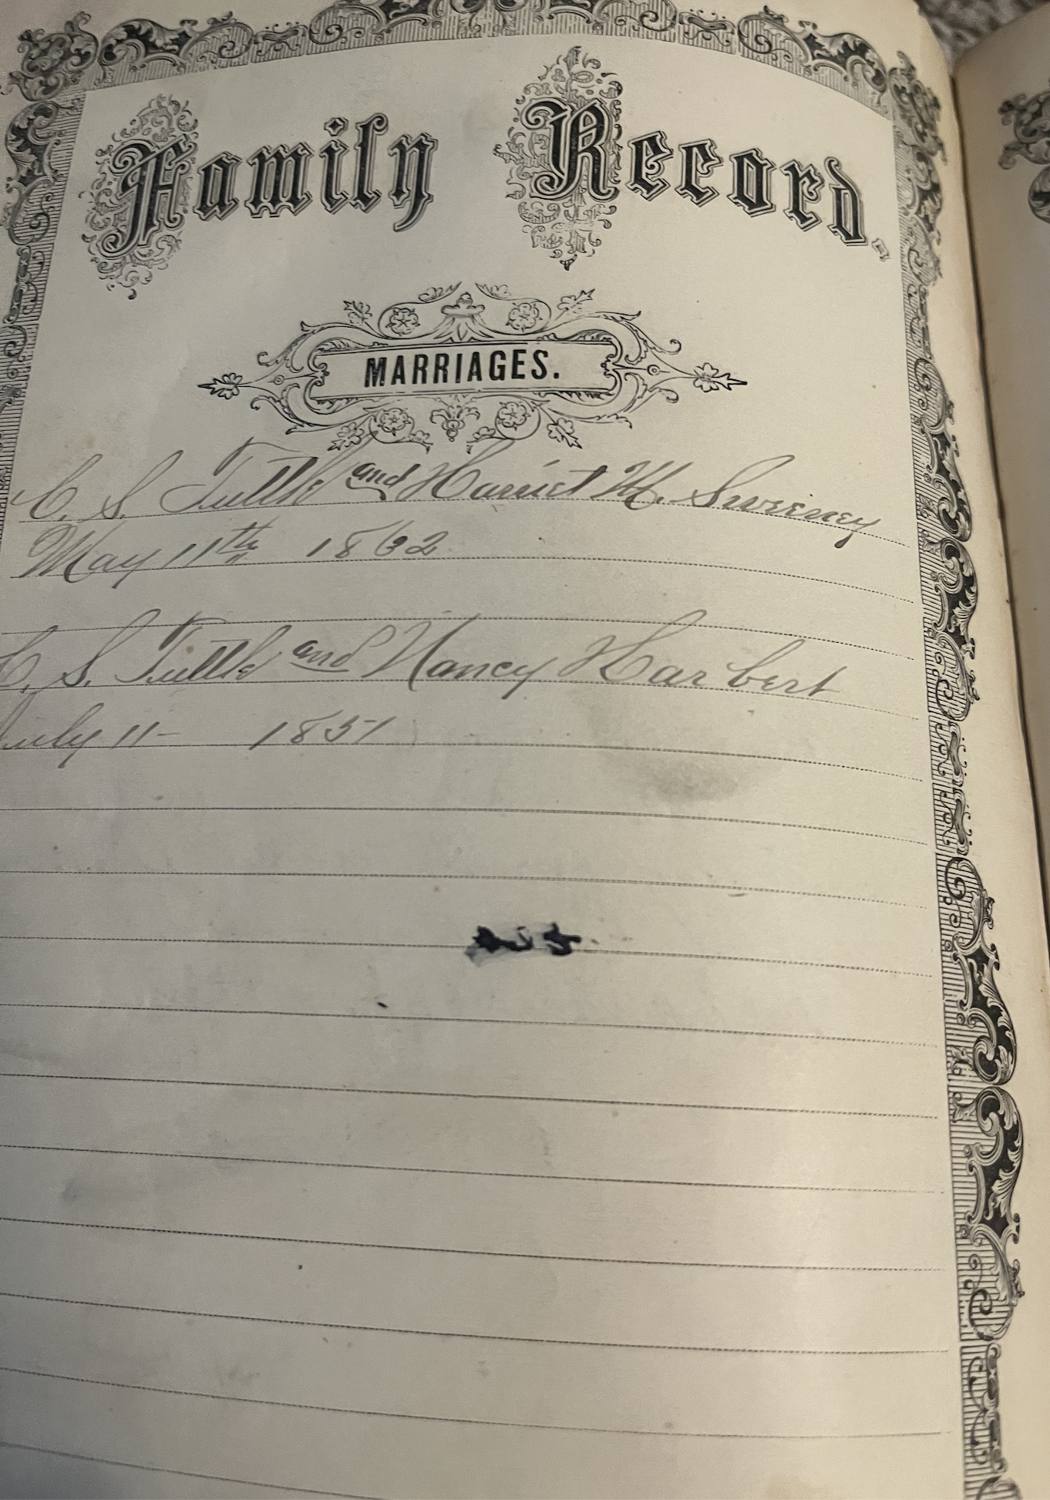 Family Record.
MARRIAGES.
C. S. Tuttle and Harriet M. Sweeney
May 11th 1862
C. S. Tuttle and Nancy Harbert
July 11 - 1851